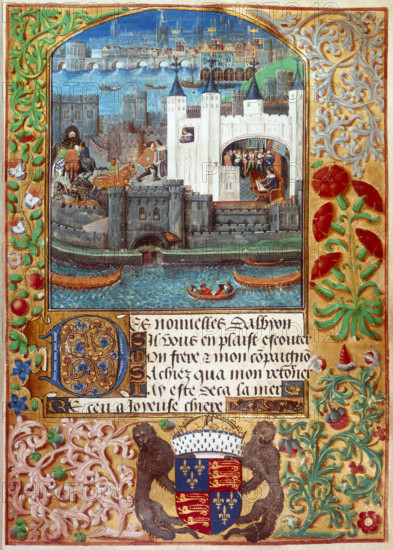 Des nouuelles Dalbyon
Sil vous en plaist escouter
Mon frere & mon cōpaigno
Sachiez qua mon retorner
Jay este deca la mer
Receu a Joyeuse chiere